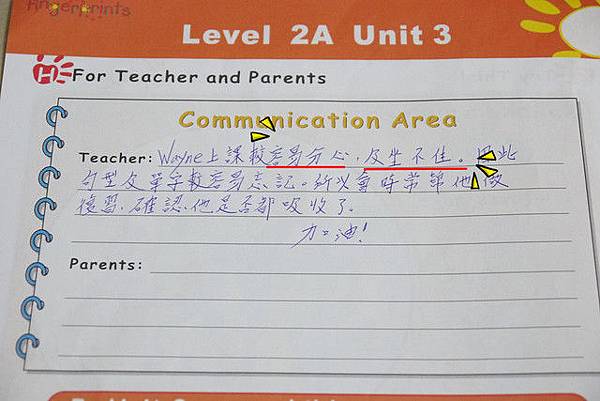 Fingerprints
Level 2A Unit 3
H For Teacher and Parents
Communication Area
Teacher: Wayne上課較容易分心,及坐不住。因此
句型及單字較容易忘記。所以會時常帶他做
複習,確認他是否都吸收了。
加油!
Parents: